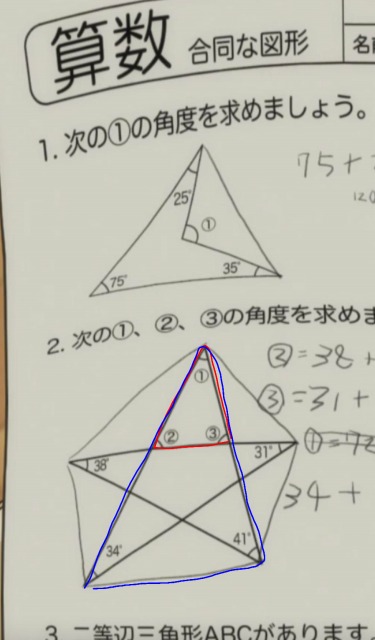 算数 合同な図形
1. 次の①の角度を求めましょう。
75+
25°
①
75°
35°
2. 次の①、②、③の角度を求め
②=38+
①
③=31+
② ③
38°
31°
34+
34°
41°
3. 二等辺三角形ABCがあります